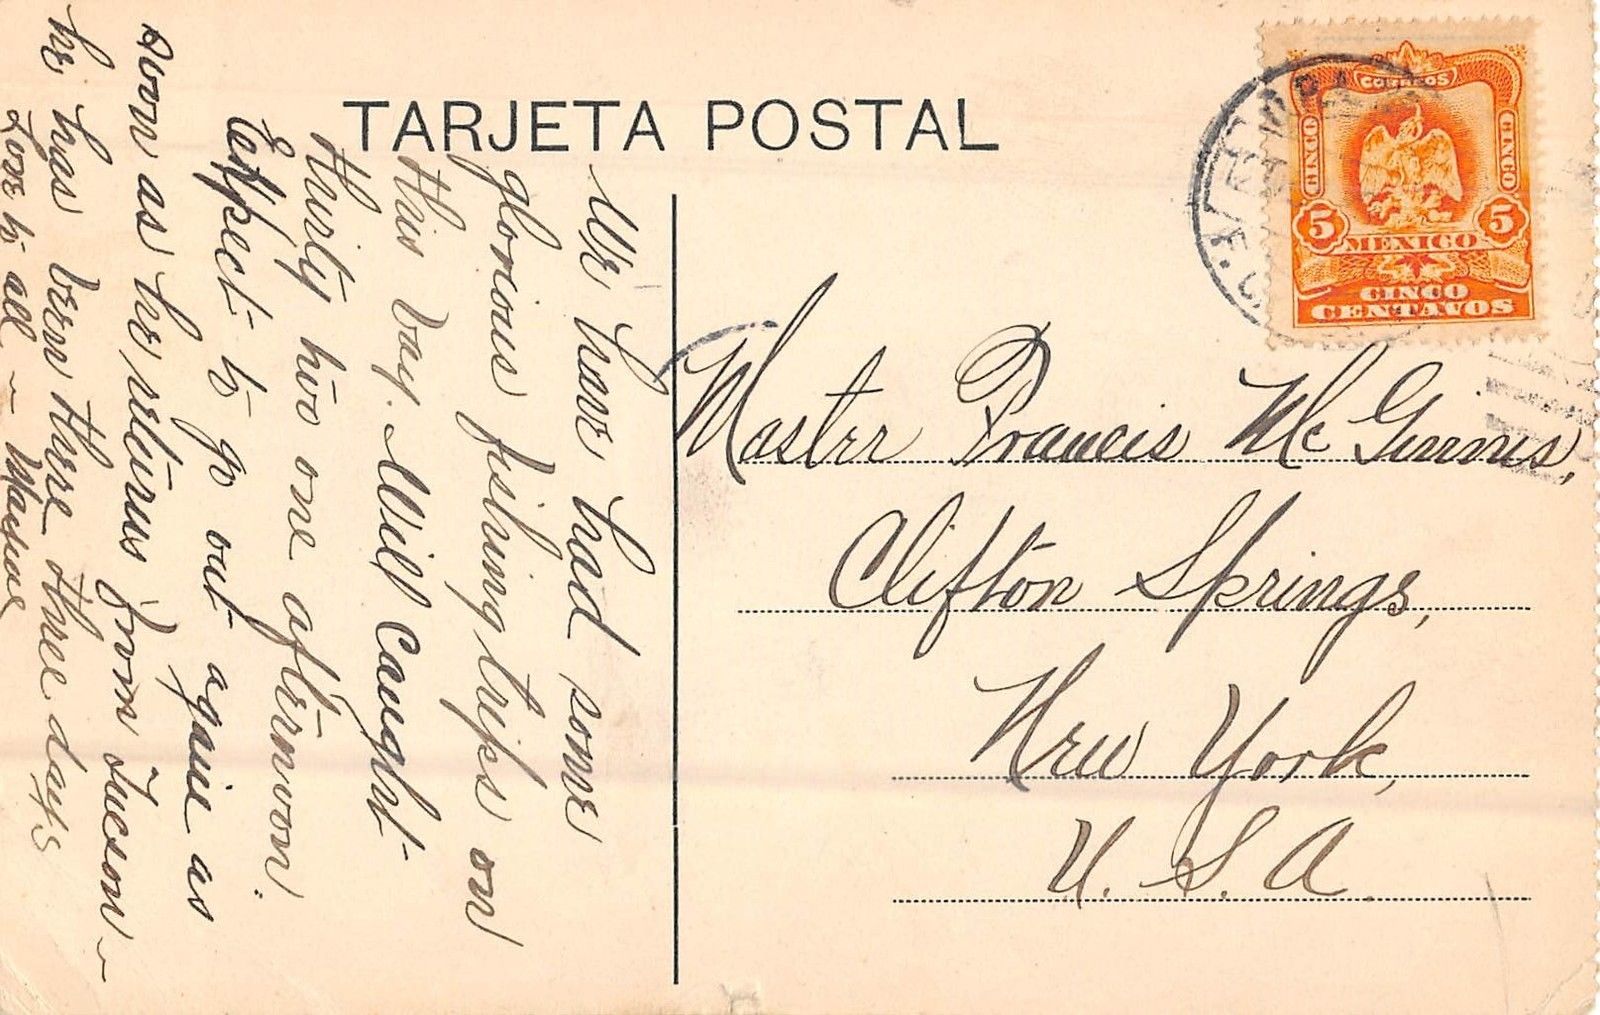 TARJETA POSTAL
We have had some
glorious fishing trips on
this bay. Will caught
thirty two one afternoon.
Expect to go out again as
soon as he returns from Tucson –
he has been there three days
Love to all – 
CORREOS
CINCO
CINCO
5
5
MEXICO
CINCO
CENTAVOS
Master Francis McGinnis,
Clifton Springs,
New York,
U. S. A.